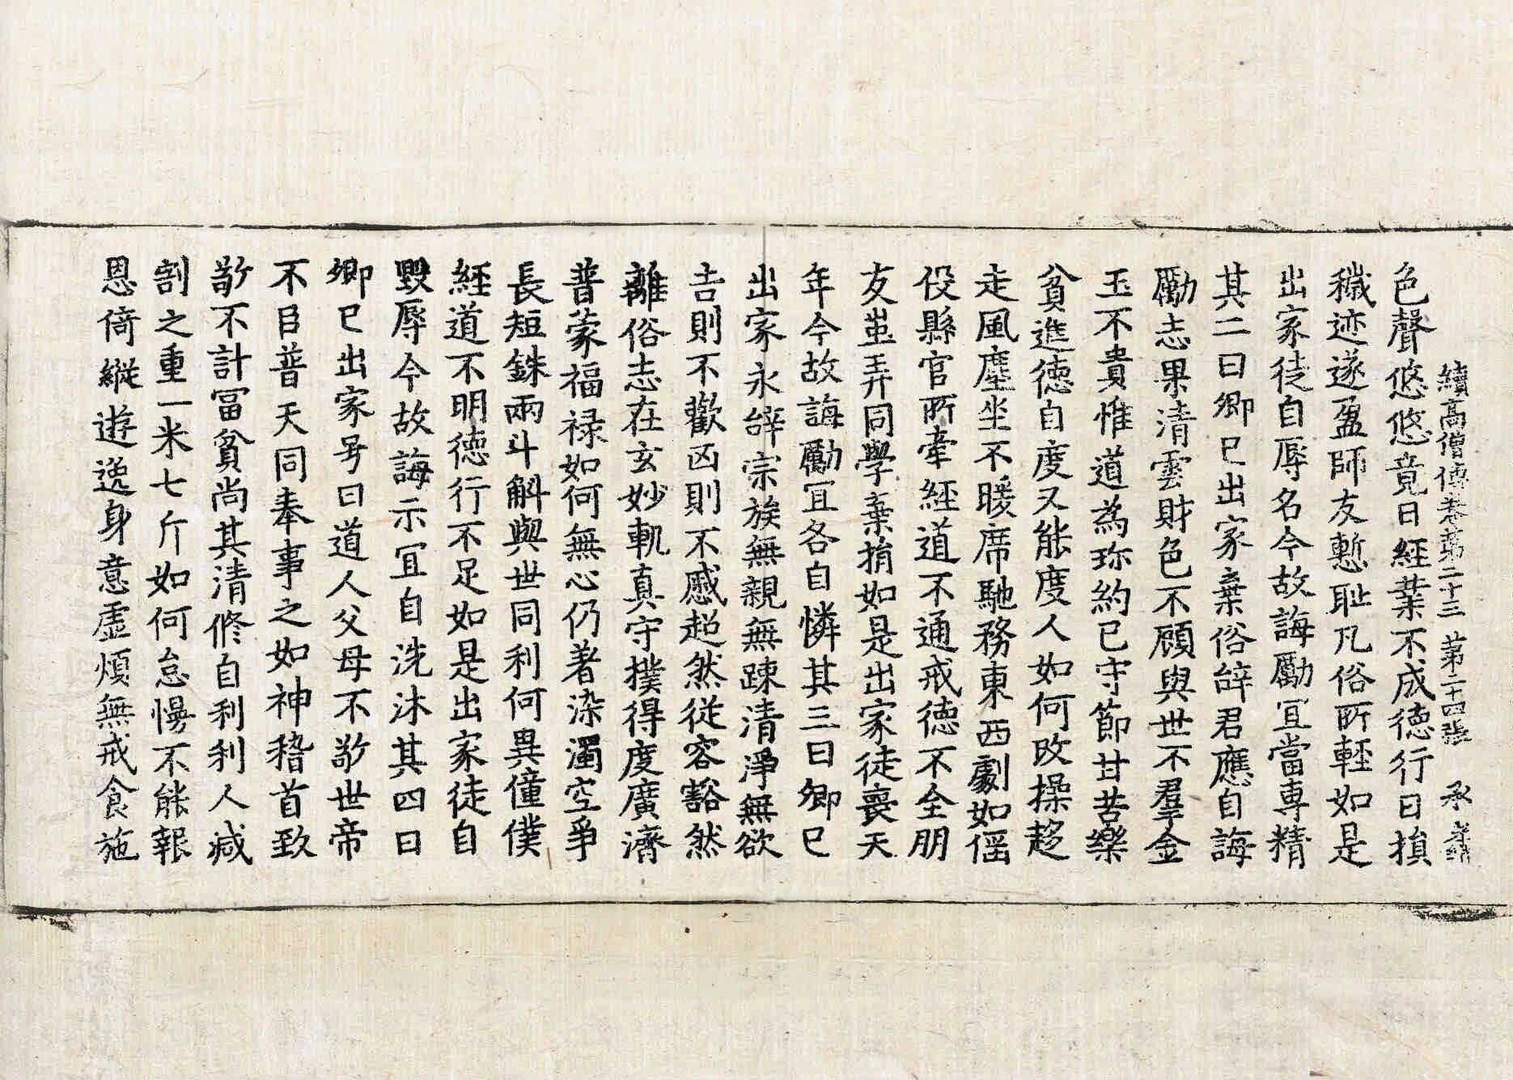 續高僧傳卷第二十三 第二十四張 承
色聲悠悠竟日經業不成德行日損
穢迹遂盈師友慙耻凡俗所輕如是
出家徒自辱名今故誨勵冝當專精
其二曰卿已出家棄俗辝君應自誨
勵志果清雲財色不顧與世不羣金
玉不貴惟道為珎約己守節甘苦樂
貧進德自度又能度人如何改操趍
走風塵坐不暖席馳務東西劇如傜
役縣官所牽經道不通戒德不全朋
友蚩弄同學棄捐如是出家徒喪天
年今故誨勵冝各自憐其三曰卿已
出家永辝宗族無親無踈清淨無欲
吉則不歡凶則不慼超然從容豁然
離俗志在玄妙軌真守撲得度廣濟
普蒙福禄如何無心仍著染濁空爭
長短銖兩斗斛與世同利何異僮僕
經道不明德行不足如是出家徒自
毀辱今故誨示冝自洗沐其四曰
卿已出家号曰道人父母不敬世帝
不臣普天同奉事之如神稽首致
敬不計冨貧尚其清修自利利人减
割之重一米七斤如何怠慢不能報
恩倚縱遊逸身意虛煩無戒食施